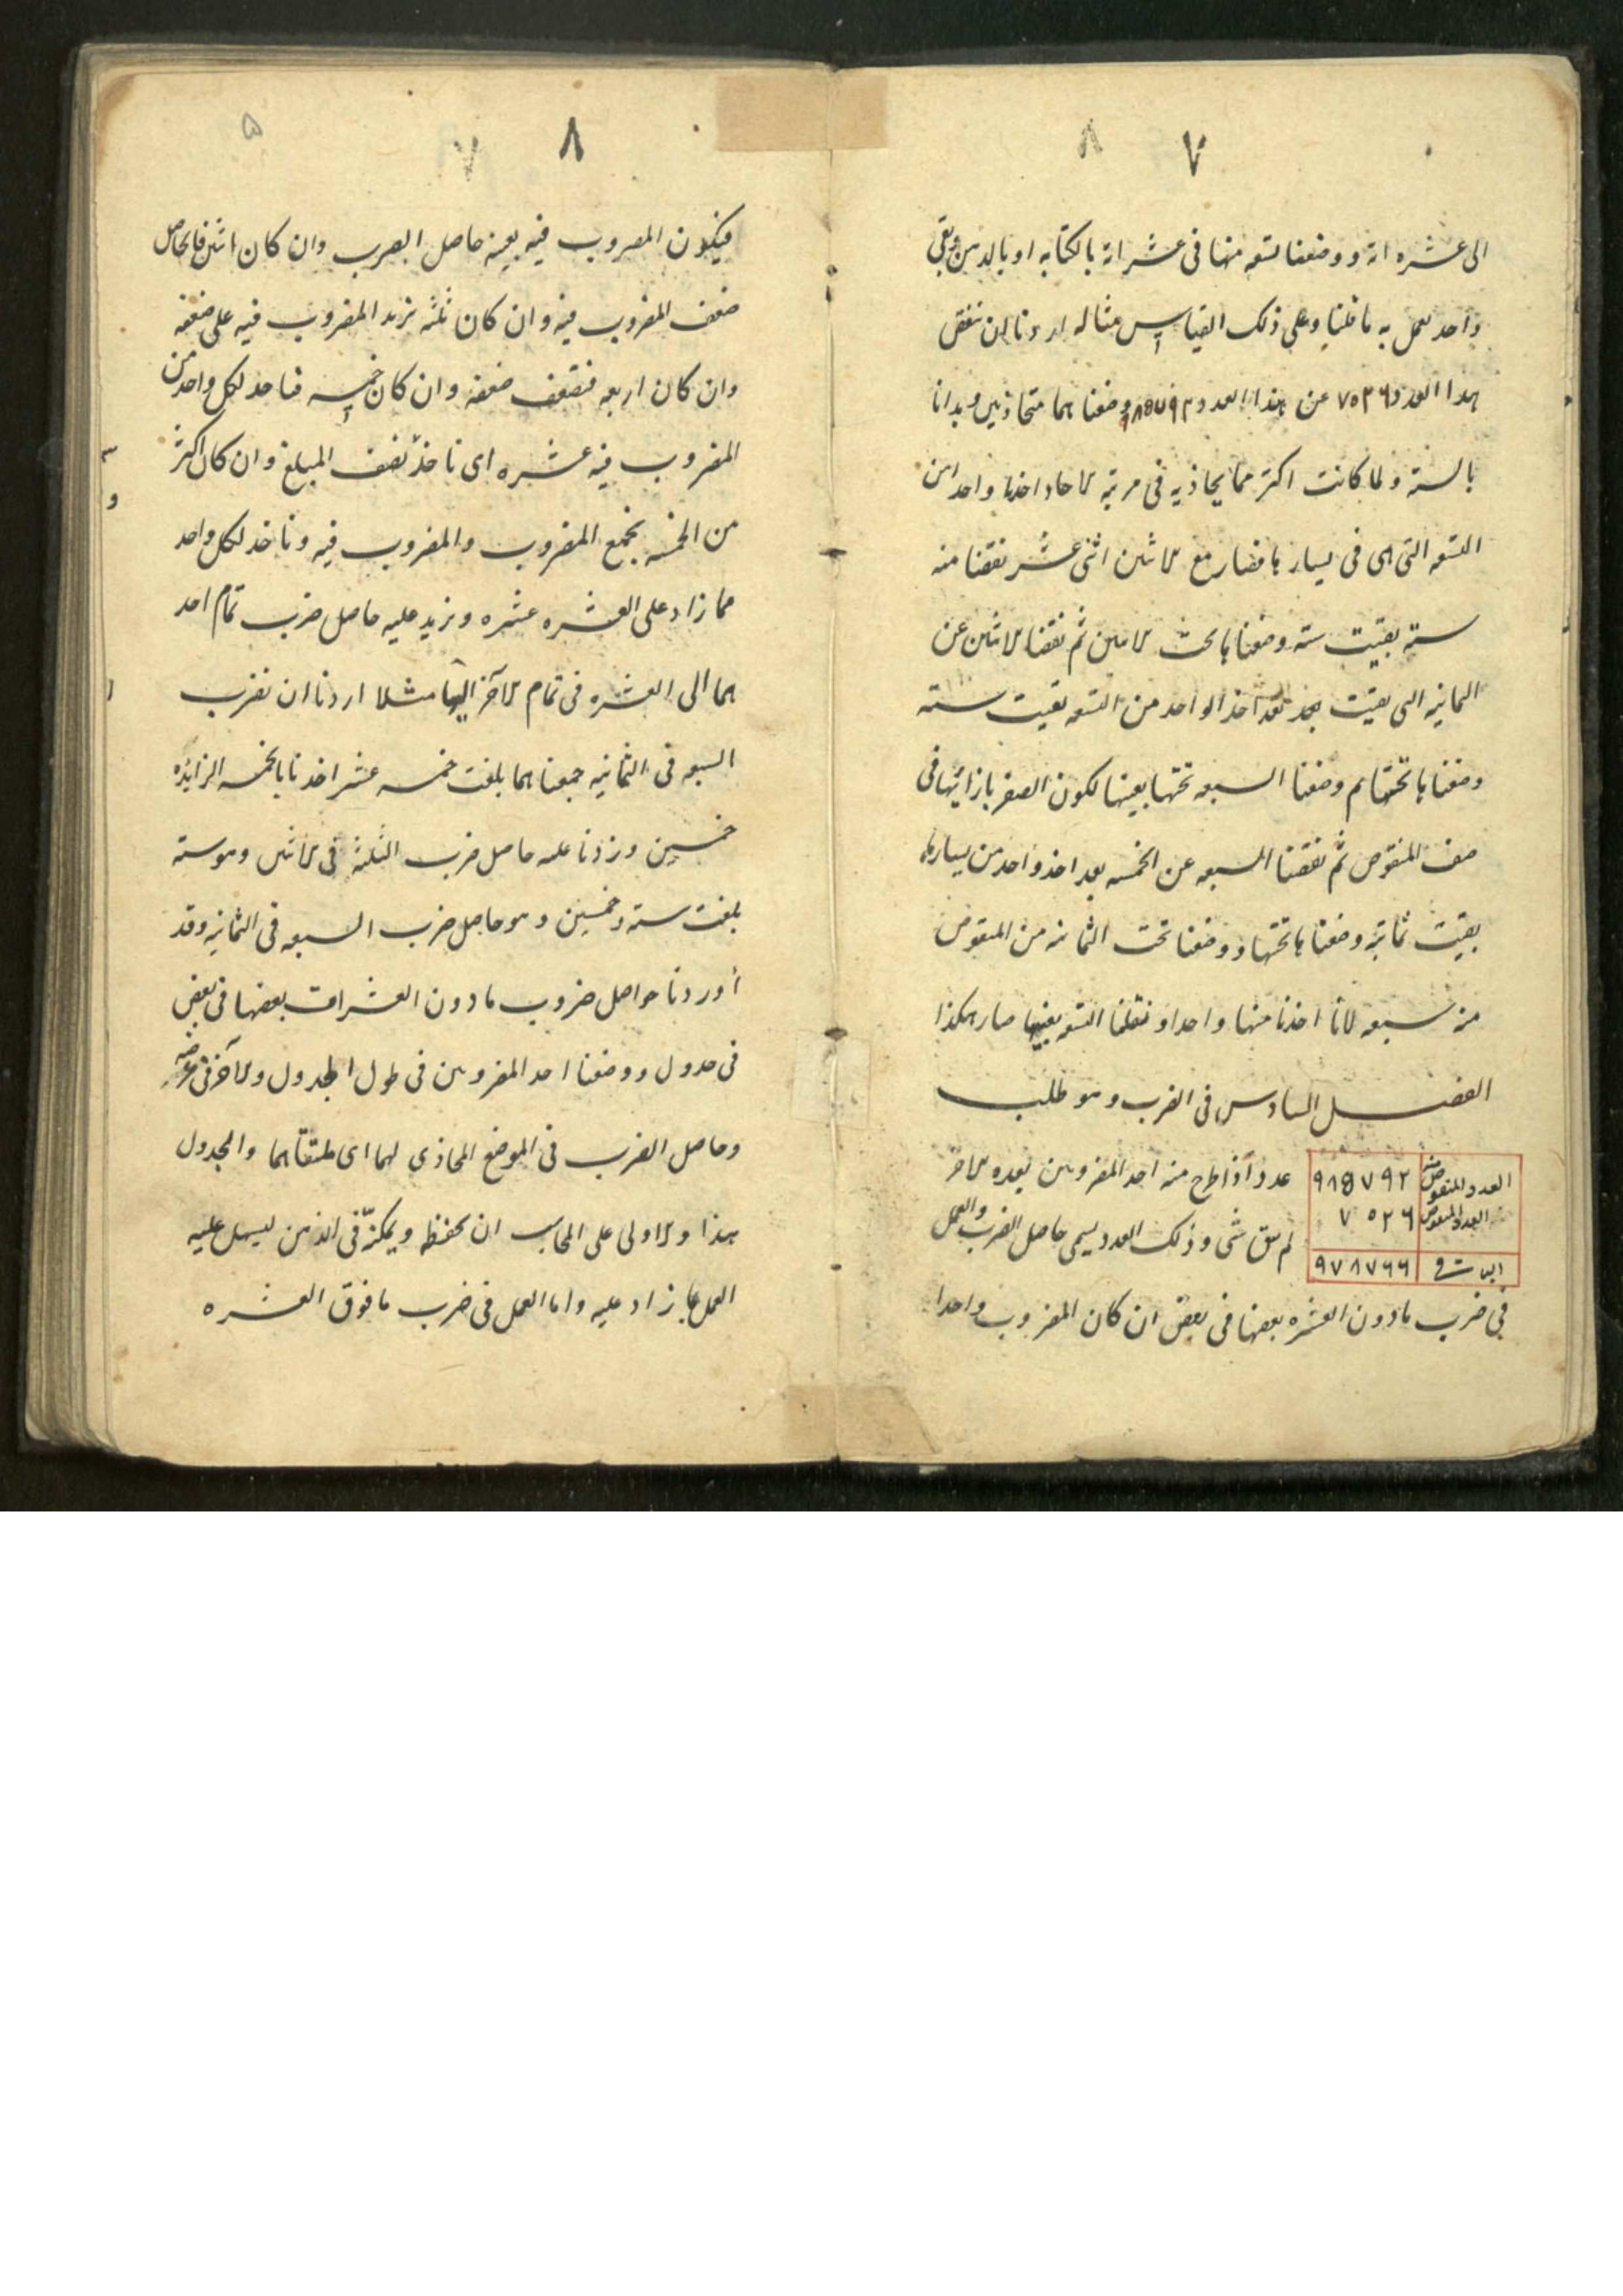 ٧ ٨
الى عشره اته و وضعنا تسعه منها فى عشراته بالكتابه او بالذهن وبقى
واحد نعمل به ما قلنا وعلى ذلك القياس مثاله اردنا ان ننقص
هذا العدد ٧٥٢٦ عن هذا العدد وضعنا هما متحاذيين وبدانا
بالستة ولما كانت اكثر مما يحاذيه فى مرتبة الاحاد اخذنا واحدا من
التسعه التى هى فى يسارها فصار مع الاثنين اثنى عشر نقصنا منه
ستة بقيت ستة وضعناها تحت الاثنين ثم نقصنا الاثنين عن
الثمانيه التى بقيت بعد اخذ الواحد من التسعه بقيت ستة
وضعناها تحتها ثم وضعنا السبعه تحتها بعينها لكون الصفر بازائها فى
صف المنقوص ثم نقصنا السبعه عن الخمسه بعد اخذ واحد من يسارها
بقيت ثمانية وضعناها تحتها و وضعنا تحت الثمانيه من المنقوص
منه سبعه لانا اخذنا منها واحدا و نقلنا التسعه بعينها صار هكذا
الفصل السادس فى الضرب وهو طلب
العدد المنقوص منه ٩٨٥٧٩٢
العدد المنقوص ٧٠٢٦
الباقى ٩٧٨٧٦٦
عدد اذا طرح منه احد المضروبين بعدة الاخر
لم يبق شى وذلك العدد يسمى حاصل الضرب والعمل
فى ضرب مادون العشره بعضها فى بعض ان كان المضروب واحدا
٨ ٧ ۵
فيكون المضروب فيه بعينه حاصل الضرب وان كان اثنين فالحاصل
ضعف المضروب فيه وان كان ثلثه نزيد المضروب فيه على ضعفه
وان كان اربعه فنضعف ضعفه وان كان خمسه فناخذ لكل واحد من
المضروب فيه عشره اى ناخذ نصف المبلغ وان كان اكثر
من الخمسه نجمع المضروب والمضروب فيه وناخذ لكل واحد
مما زاد على العشره عشره ونزيد عليه حاصل ضرب تمام احد
هما الى العشره فى تمام الآخر اليها مثلا اردنا ان نضرب
السبعه فى الثمانيه جمعناهما بلغت خمسه عشر اخذنا بالخمسه الزايده
خمسين وزدنا عليه حاصل ضرب الثلثه فى الاثنين وهو ستة
بلغت ستة وخمسين وهو حاصل ضرب السبعه فى الثمانيه وقد
أوردنا حواصل ضروب مادون العشرات بعضها فى بعض
فى جدول ووضعنا احد المضروبين فى طول الجدول والآخر فى عرضه
وحاصل الضرب فى الموضع المحاذى لهما اى ملتقاهما والجدول
هذا والاولى على المحاسب ان يحفظه ويمكنه فى الذهن ليسهل عليه
العمل بما زاد عليه واما العمل فى ضرب مافوق العشره